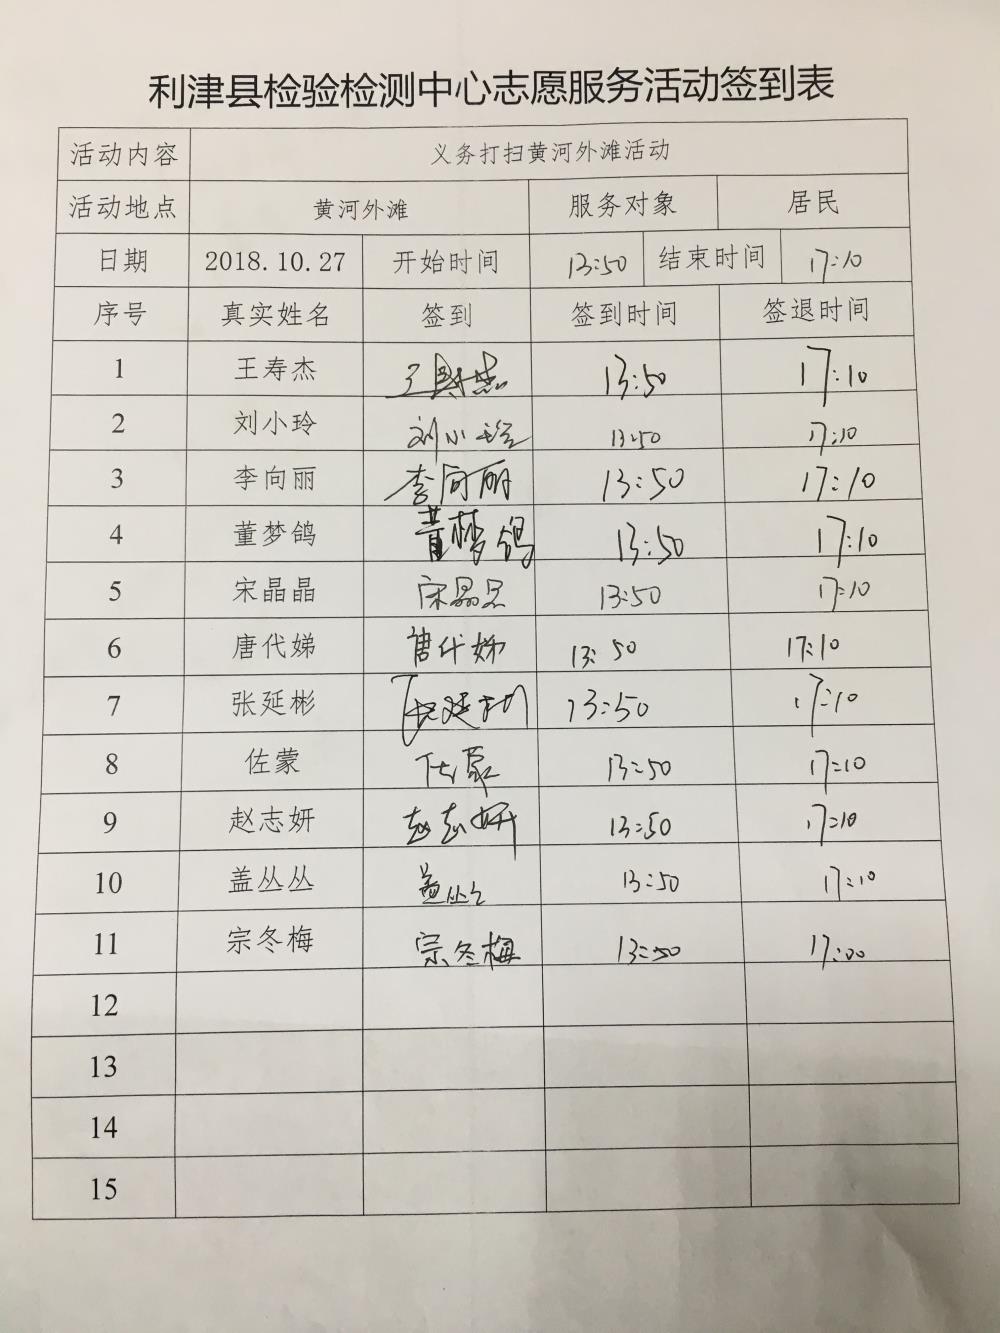 利津县检验检测中心志愿服务活动签到表
活动内容 义务打扫黄河外滩活动
活动地点 黄河外滩 服务对象 居民
日期 2018.10.27 开始时间 13:50 结束时间 17:10
序号 真实姓名 签到 签到时间 签退时间
1 王寿杰 王寿杰 13:50 17:10
2 刘小玲 刘小玲 13:50 17:10
3 李向丽 李向丽 13:50 17:10
4 董梦鸽 董梦鸽 13:50 17:10
5 宋晶晶 宋晶晶 13:50 17:10
6 唐代娣 唐代娣 13:50 17:10
7 张延彬 张延彬 13:50 17:10
8 佐蒙 佐蒙 13:50 17:10
9 赵志妍 赵志妍 13:50 17:10
10 盖丛丛 盖丛丛 13:50 17:10
11 宗冬梅 宗冬梅 13:50 17:00
12
13
14
15